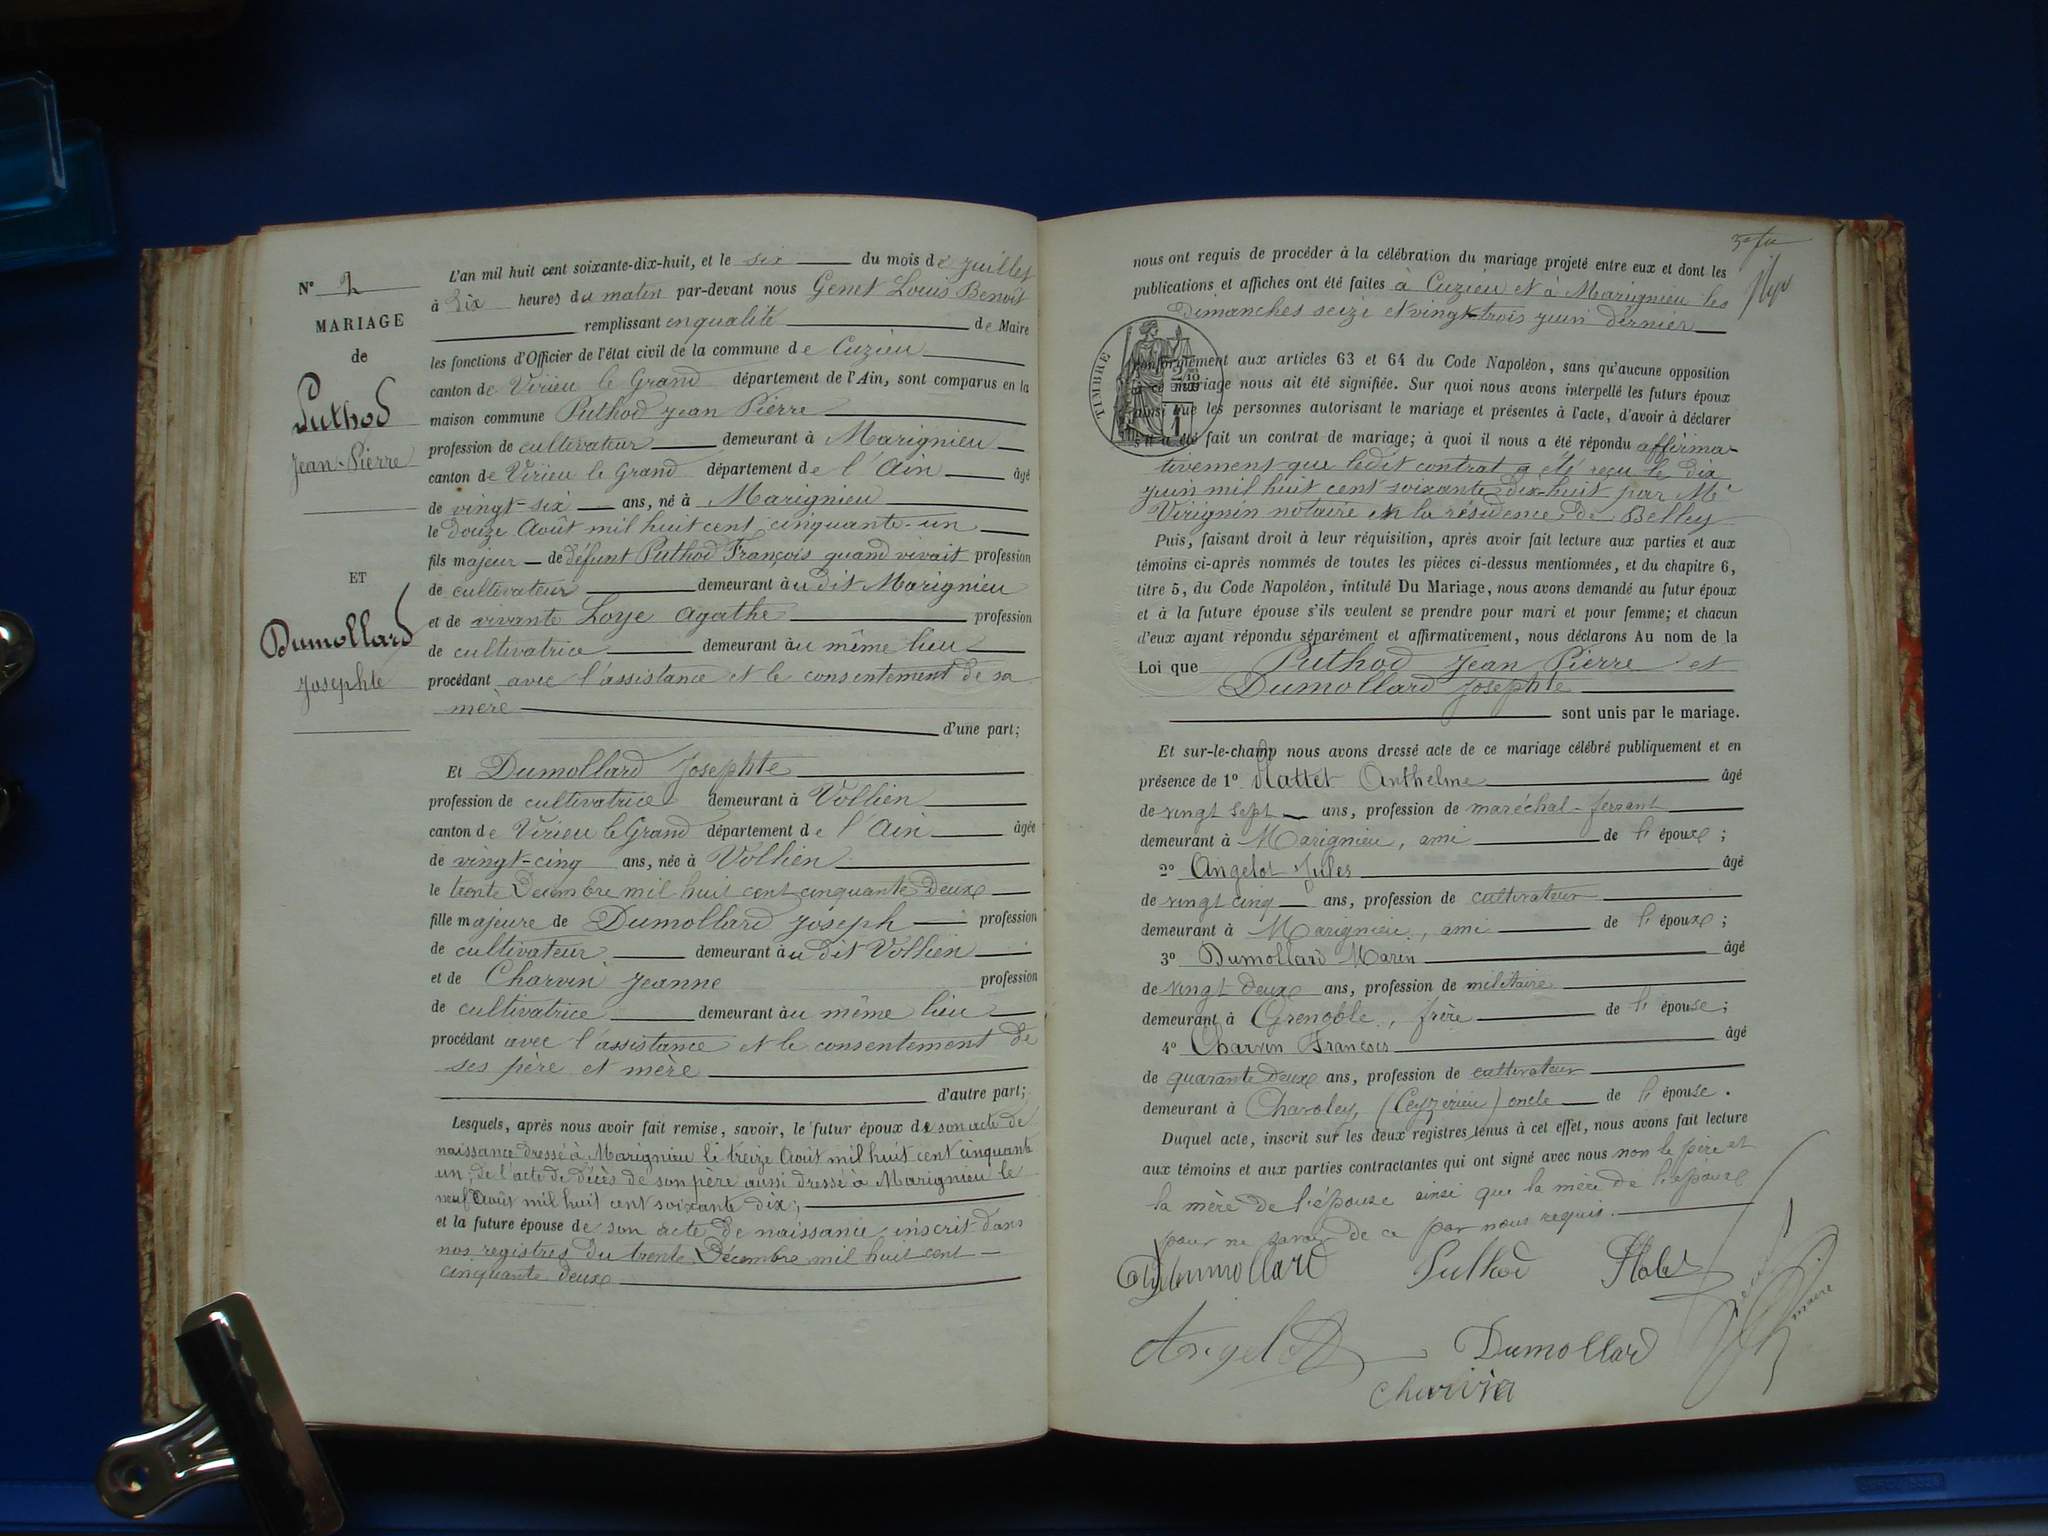 Nº 2
MARIAGE
de
Puthod
Jean-Pierre
ET
Dumollard
Josephte
L'an mil huit cent soixante-dix-huit, et le six du mois de juillet
à dix heures du matin par-devant nous Genet Louis Benoît
remplissant en qualité de Maire
les fonctions d'Officier de l'état civil de la commune de Cuzieu
canton de Virieu le Grand département de l'Ain, sont comparus en la
maison commune Puthod Jean Pierre
profession de cultivateur demeurant à Marignieu
canton de Virieu le Grand département de l'Ain âgé
de vingt-six ans, né à Marignieu
le douze Août mil huit cent cinquante-un
fils majeur de défunt Puthod François quand vivait profession
de cultivateur demeurant au dit Marignieu
et de vivante Loye Agathe profession
de cultivatrice demeurant au même lieu
procédant avec l'assistance et le consentement de sa
mère
d'une part;
Et Dumollard Josephte
profession de cultivatrice demeurant à Vollien
canton de Virieu le Grand département de l'Ain âgée
de vingt-cinq ans, née à Vollien
le trente Décembre mil huit cent cinquante deux
fille majeure de Dumollard Joseph profession
de cultivateur demeurant au dit Vollien
et de Charvin Jeanne profession
de cultivatrice demeurant au même lieu
procédant avec l'assistance et le consentement de
ses père et mère
d'autre part;
Lesquels, après nous avoir fait remise, savoir, le futur époux de son acte de
naissance dressé à Marignieu le treize Août mil huit cent cinquante
un, de l'acte de décès de son père aussi dressé à Marignieu le
neuf Août mil huit cent soixante dix;
et la future épouse de son acte de naissance inscrit dans
nos registres du trente Décembre mil huit cent
cinquante deux
nous ont requis de procéder à la célébration du mariage projeté entre eux et dont les
publications et affiches ont été faites à Cuzieu et à Marignieu les
Dimanches seize et vingt-trois juin dernier
TIMBRE
conformément aux articles 63 et 64 du Code Napoléon, sans qu'aucune opposition
à ce mariage nous ait été signifiée. Sur quoi nous avons interpellé les futurs époux
ainsi que les personnes autorisant le mariage et présentes à l'acte, d'avoir à déclarer
s'il a été fait un contrat de mariage; à quoi il nous a été répondu affirma-
tivement que ledit contrat a été reçu le dix
juin mil huit cent soixante dix-huit par Me
Virignin notaire en la résidence de Belley
Puis, faisant droit à leur réquisition, après avoir fait lecture aux parties et aux
témoins ci-après nommés de toutes les pièces ci-dessus mentionnées, et du chapitre 6,
titre 5, du Code Napoléon, intitulé Du Mariage, nous avons demandé au futur époux
et à la future épouse s'ils veulent se prendre pour mari et pour femme; et chacun
d'eux ayant répondu séparément et affirmativement, nous déclarons Au nom de la
Loi que Puthod Jean Pierre et
Dumollard Josephte
sont unis par le mariage.
Et sur-le-champ nous avons dressé acte de ce mariage célébré publiquement et en
présence de 1º Anthelme âgé
de vingt sept ans, profession de maréchal-ferrant
demeurant à Marignieu, ami de l' époux;
2º Angelot Jules âgé
de vingt cinq ans, profession de cultivateur
demeurant à Marignieu, ami de l' époux;
3º Dumollard Marin âgé
de vingt deux ans, profession de militaire
demeurant à Grenoble, frère de l' épouse;
4º Charvin François âgé
de quarante deux ans, profession de cultivateur
demeurant à Charoley, (Ceyzérieu) oncle de l' épouse.
Duquel acte, inscrit sur les deux registres tenus à cet effet, nous avons fait lecture
aux témoins et aux parties contractantes qui ont signé avec nous non le père et
la mère de l'épouse ainsi que la mère de l'époux
pour ne savoir de ce par nous requis.
Dumollard Puthod
Angelot Dumollard
Charvin
maire